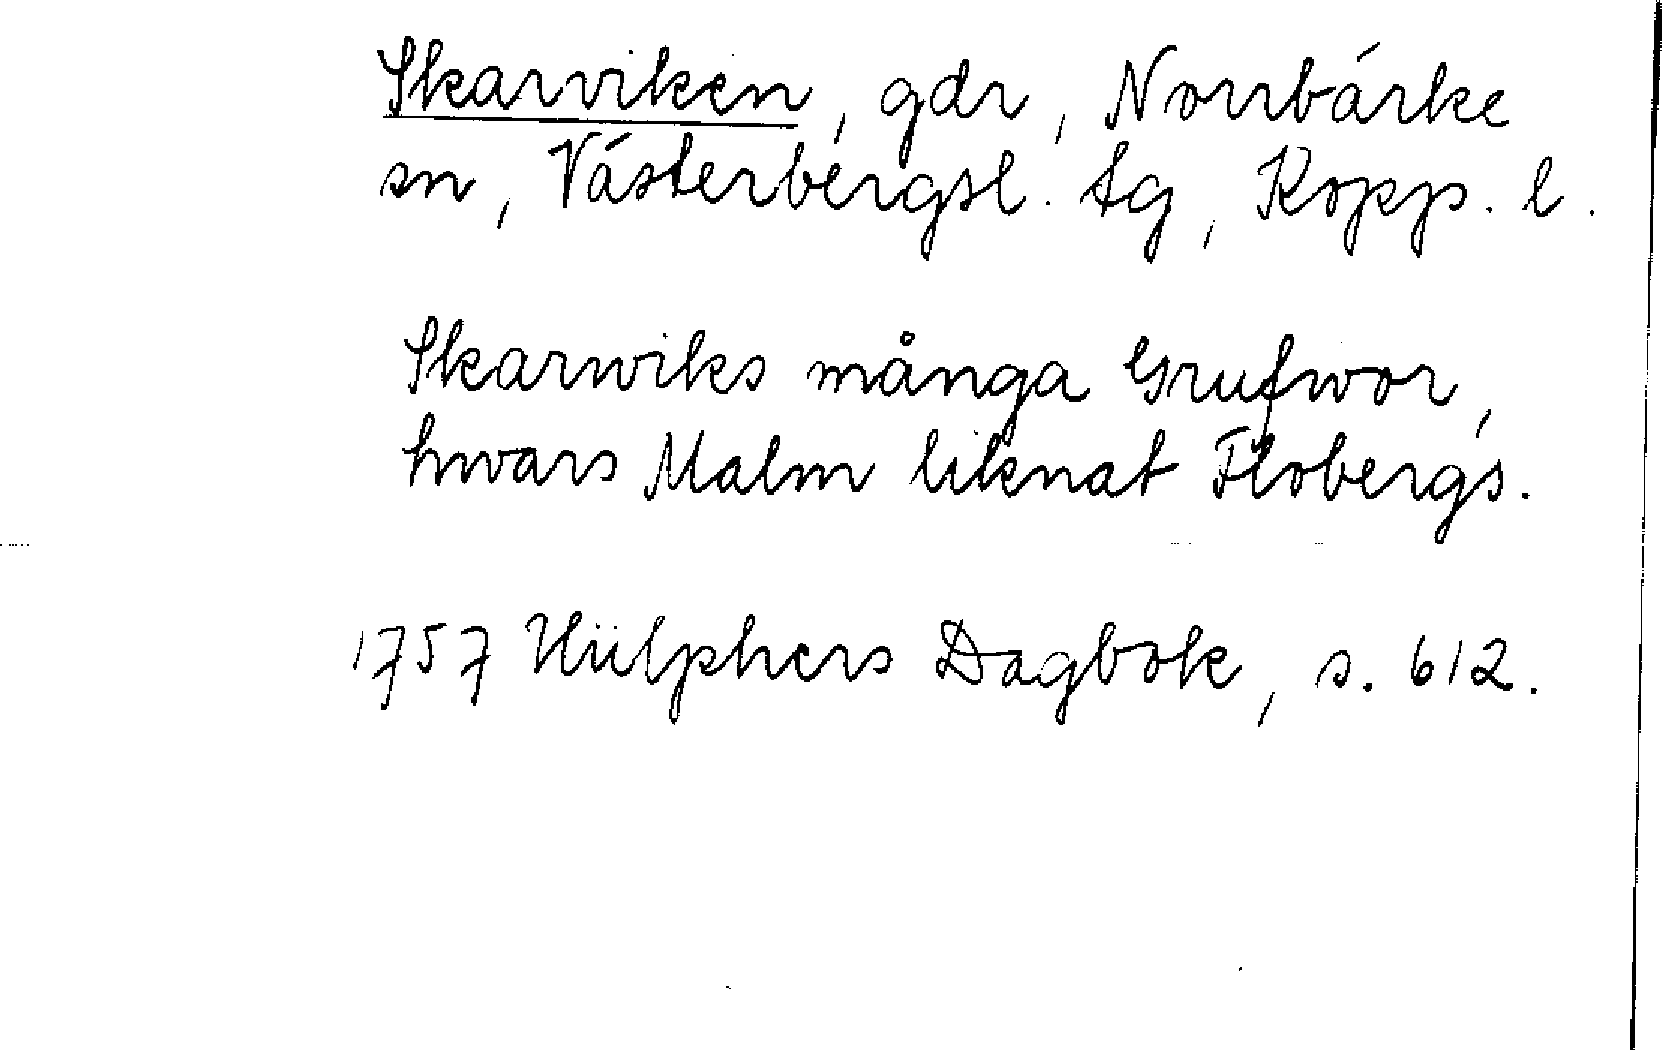 Skarviken, gdr, Norrbärke
sn, Västerbergsl. tg, Kopp. l.
Skarwiks många Grufwor,
hwars Malm liknat Flobergs.
1757 Hülphers Dagbok, s. 612.